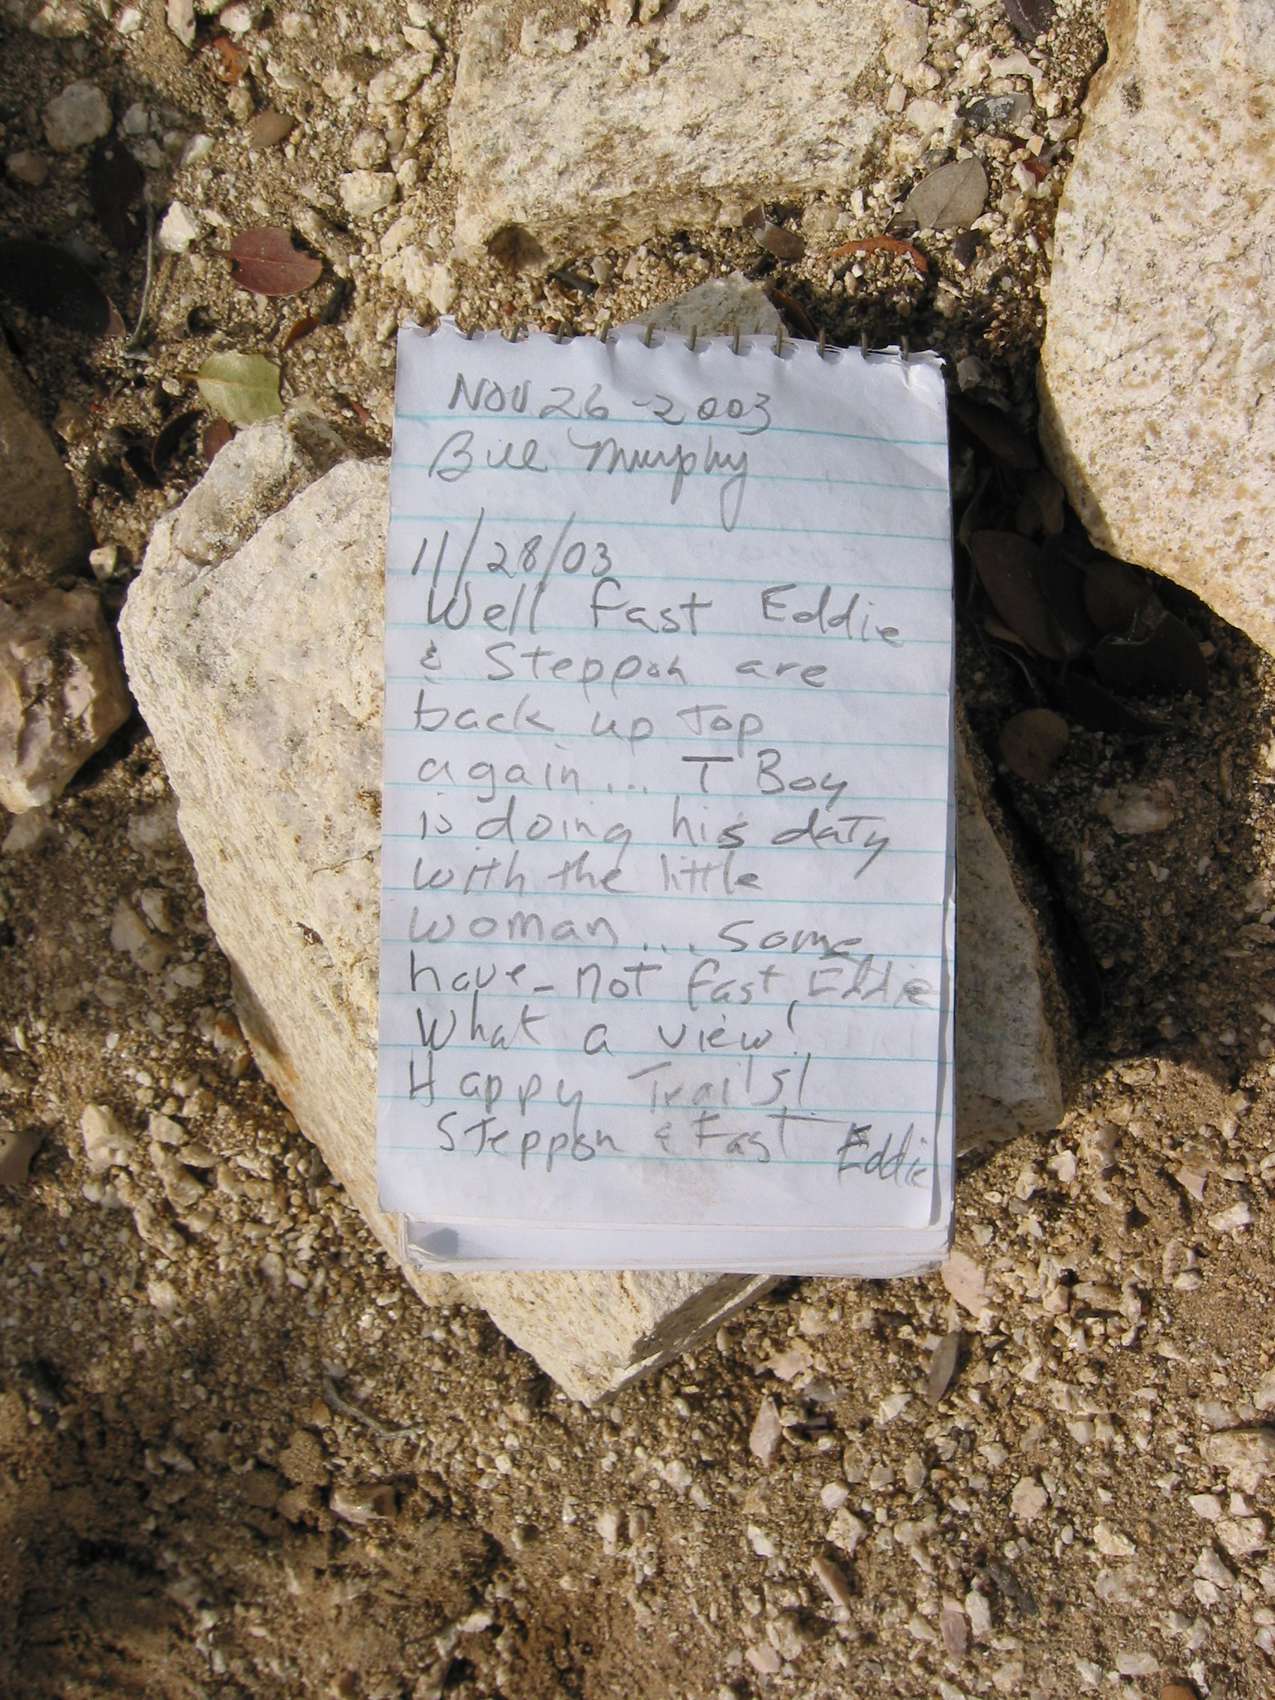 NOV 26-2003
Bill Murphy
11/28/03
Well Fast Eddie
& Steppon are
back up Top
again... T Boy
is doing his daty
with the little
woman... some
have - not Fast Eddie
What a view!
Happy Trails!
Steppon & Fast Eddie